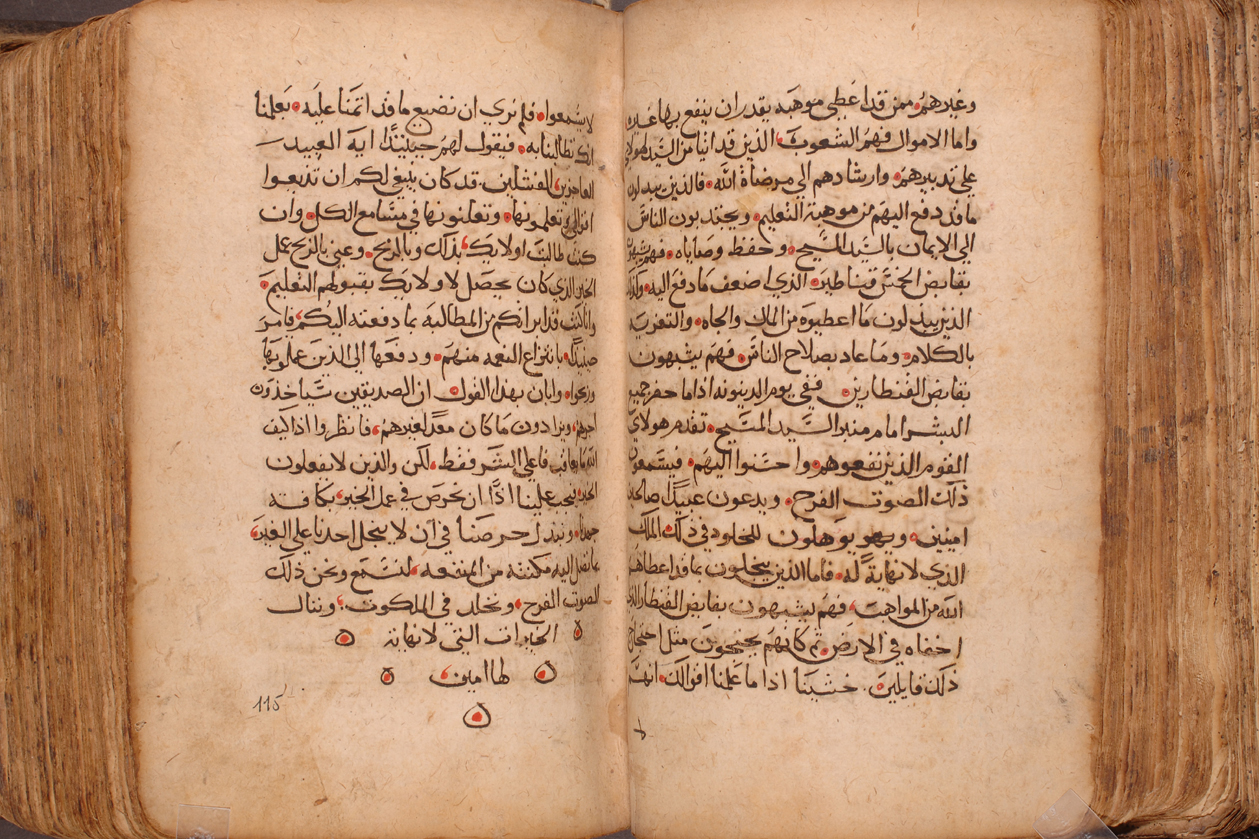 وغيرهم. ممن قد اعطي موهبه يقدر ان ينفع بها غيره
واما الاموال فهم الشعوب. الذين قد اتيا من السيد لهولاي
على تدبيرهم. وارشادهم الى مرضاة الله. فالذين يبدلون
ما قد دفع اليهم من موهبة التعليم. ويجتدبون الناس
الى الايمان بالسيد المسيح. وحفظ وصاياه. فهم يشبهون
بقابض الخمس قناطير. الذي اضعف ما دفع اليه. وكذلك
الذين يبدلون ما اعطيوه من المال والجاه. والتعزيه
بالكلام. وما عاد بصلاح الناس. فهم يشبهون
بقابض القنطارين. ففي يوم الدينونه اذا ما حضر جميع
البشر امام منبر السيد المسيح. تقدم هولاي
القوم الذين نفعوهم. واحسنوا اليهم. فيسمعون
ذلك الصوت الفرح. ويدعون عبيدًا صالحين
امينين. ويوهلون للخلود في ذلك الملك
الذي لا نهاية له. فاما الذين يبخلون بما قد اعطاهم
الله من المواهب. فهم يشبهون بقابض القنطار الذي
اخفاه في الارض. ثم كانهم يحتجون مثل احتجاج
ذلك قايلين. خشينا اذا ما علمنا اقوالك. انهم
لا يسمعوا. فلم نرى ان نضيع ما قد اتمنا عليه. بعلمنا
انك تطالبنا به. فيقول لهم حينيذًا ايه العبيد
العاجزين الفشلين. قد كان ينبغي لكم ان تديعوا
اقوالي وتعلمونها. وتعلنونها في مسامع الكل. وان
كنت طالبت اولايك بذلك وبالربح. وعني بالربح عمل
الخير الذي كان يحصل لاولايك بقبولهم التعليم.
وانا ليت قد ابرانكم من المطالبه بما دفعته اليكم. فامر
حينيذًا بانتزاع النعمه منهم. ودفعها الى الذين عملوا بها
وربحوا. وابان بهذا القول ان الصديقين سياخذون
اجرهم. ويزادون ما كان معدًا لغيرهم. فانظروا اذا كيف
الله ما يعاقب فاعلي الشر فقط. لكن والذين لا يفعلون
الخير. فيجب علينا اذًا ان نحرص في عمل الخير بكافة
جهدنا. ونبذل حرصنا في ان لا يبخل احدنا على الغير.
بما تصل اليه مكنته من المنفعه. لنسمع ونحن ذلك
الصوت الفرح. ونخلد في الملكوت. وننال
الخيرات التي لا نهاية
لها امين
115